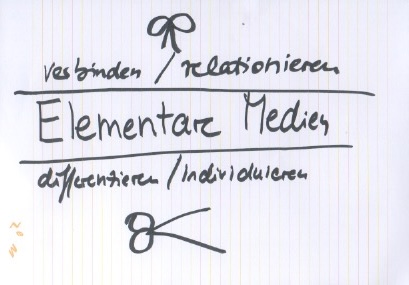 verbinden / relationieren
Elementare Medien
differentieren / individuieren